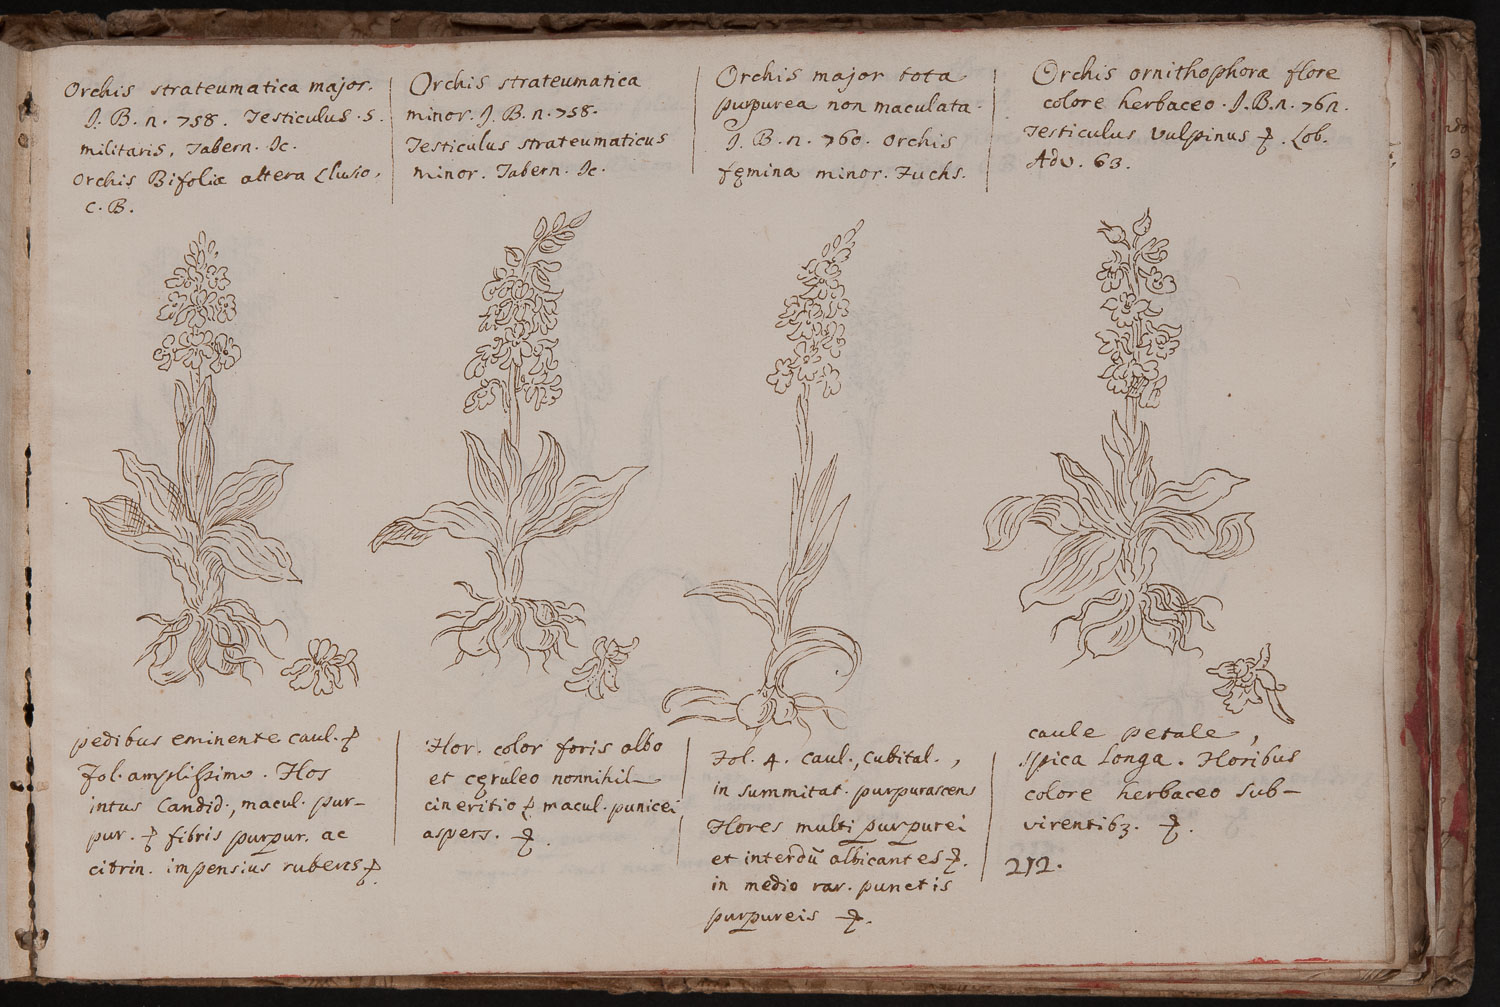 Orchis strateumatica major.
J. B. n. 758. Testiculus. s.
militaris, Tabern. Ic.
Orchis Bifoliæ altera Clusio,
C. B.
Orchis strateumatica
minor. J. B. n. 758.
Testiculus strateumaticus
minor. Tabern. Ic.
Orchis major tota
purpurea non maculata.
J. B. n. 760. Orchis
fęmina minor. Fuchs.
Orchis ornithophora flore
colore herbaceo. J. B. n.
Testiculus Vulpinus. Lob.
Adv. 63.
pedibus eminente caul.
fol. amplissimo. Flos
intus Candid., macul. pur-
pur. fibris purpur. ac
citrin. impensius rubens
Flor. color foris albo
et cęruleo nonnihil
cineritio macul. punicei
aspers.
Fol. 4. caul., cubital.,
in summitat. purpurascens
Flores multi purpurei
et interdū albicantes.
in medio rar. punctis
purpureis
caule petale,
Spica Longa. Floribus
colore herbaceo sub-
virentib3.
212.